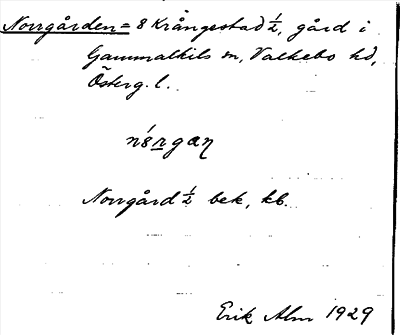 Norrgården = 8 Krångestad ½, gård i
Gammalkils sn, Valkebo hd,
Österg. l.
Norrgård ½ bek, kb.
Erik Alm 1929